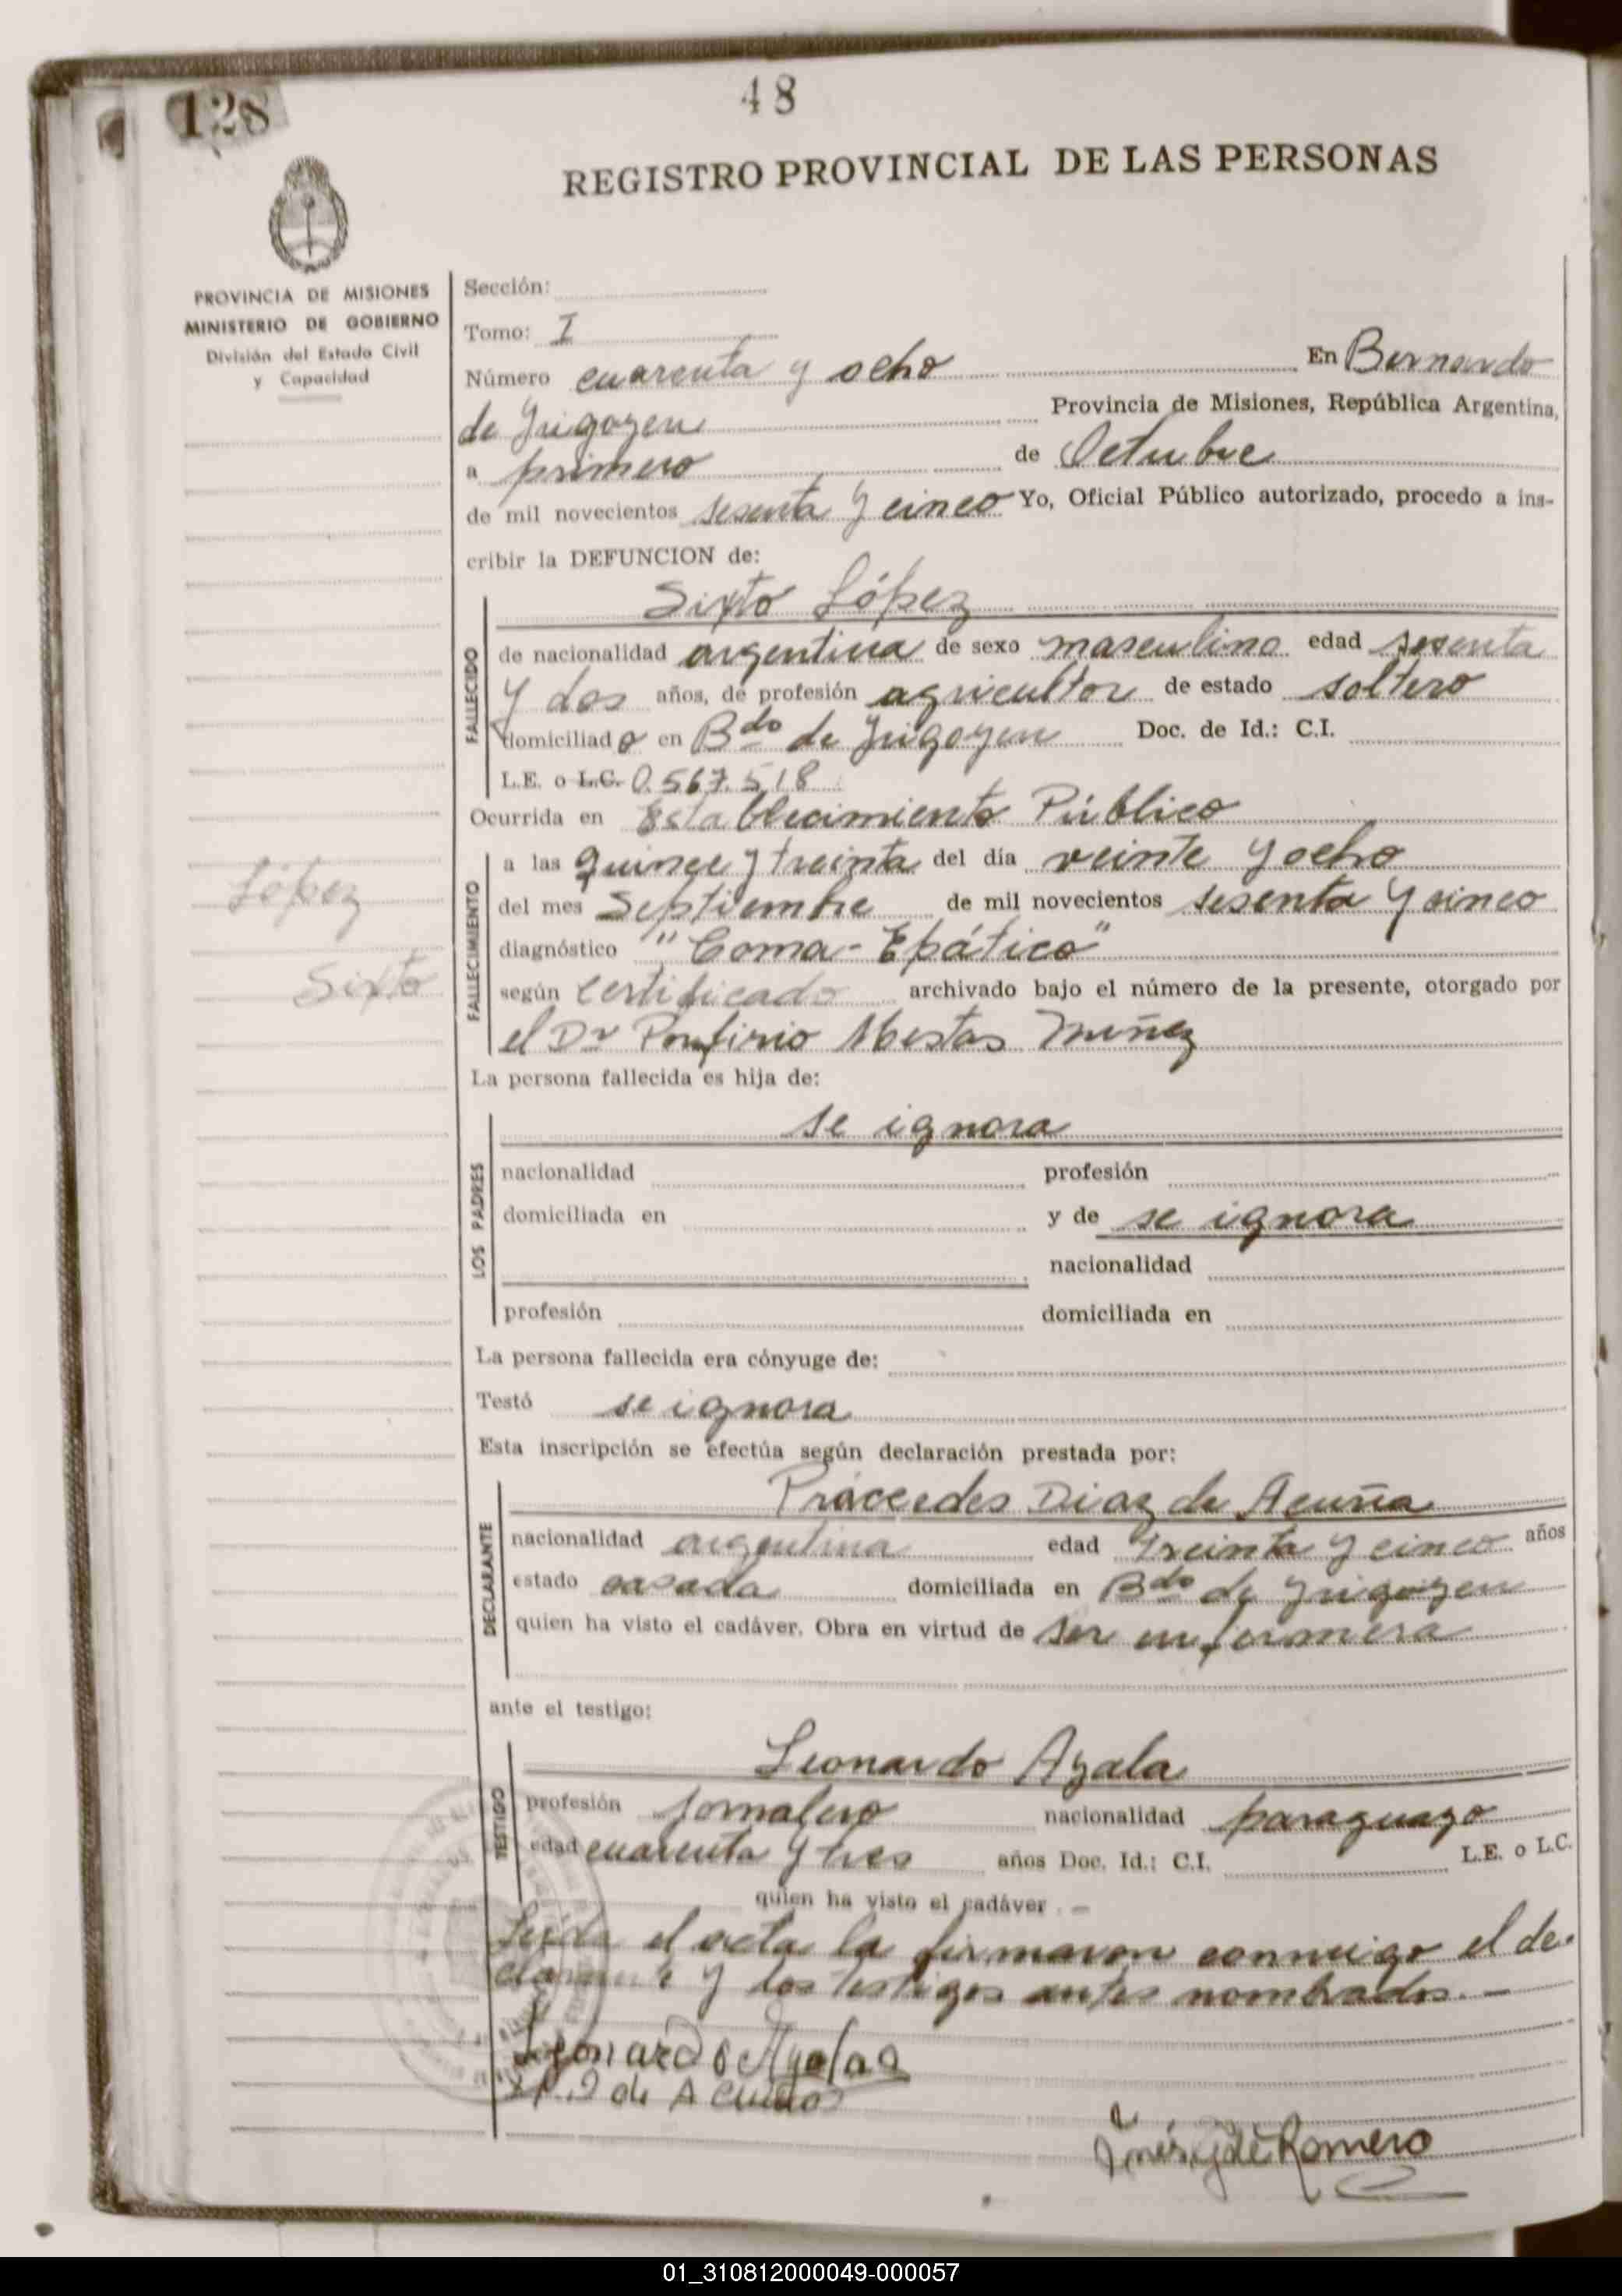 128
48
REGISTRO PROVINCIAL DE LAS PERSONAS
PROVINCIA DE MISIONES
MINISTERIO DE GOBIERNO
División del Estado Civil
y Capacidad
Sección:
Tomo: I
Número cuarenta y ocho En Bernardo
de Yrigoyen Provincia de Misiones, República Argentina,
a primero de Octubre
de mil novecientos sesenta y cinco Yo, Oficial Público autorizado, procedo a ins-
cribir la DEFUNCION de:
Sixto López
FALLECIDO
de nacionalidad argentina de sexo masculino edad sesenta
y dos años, de profesión agricultor de estado soltero
domiciliado en Bdo de Yrigoyen Doc. de Id.: C.I.
L.E. o L.C. 0.567.518
Ocurrida en Establecimiento Público
FALLECIMIENTO
a las quince y treinta del día veinte y ocho
del mes Septiembre de mil novecientos sesenta y cinco
diagnóstico "Coma-Epático"
según certificado archivado bajo el número de la presente, otorgado por
el Dr Porfirio Mestas Nuñez
López
Sixto
La persona fallecida es hija de:
se ignora
LOS PADRES
nacionalidad profesión
domiciliada en y de se ignora
nacionalidad
profesión domiciliada en
La persona fallecida era cónyuge de:
Testó se ignora
Esta inscripción se efectúa según declaración prestada por:
Praccedes Diaz de Acuña
DECLARANTE
nacionalidad argentina edad treinta y cinco años
estado casada domiciliada en Bdo de Yrigoyen
quien ha visto el cadáver. Obra en virtud de ser enfermera
ante el testigo:
Leonardo Ayala
TESTIGO
profesión Jornalero nacionalidad paraguayo
edad cuarenta y tres años Doc. Id.: C.I. L.E. o L.C.
quien ha visto el cadáver. -
Leída el acta la firmaron conmigo el de-
clarante y los testigos antes nombrados. -
Leonardo Ayala
P. D de Acuña
Inés G de Romero
01_310812000049-000057